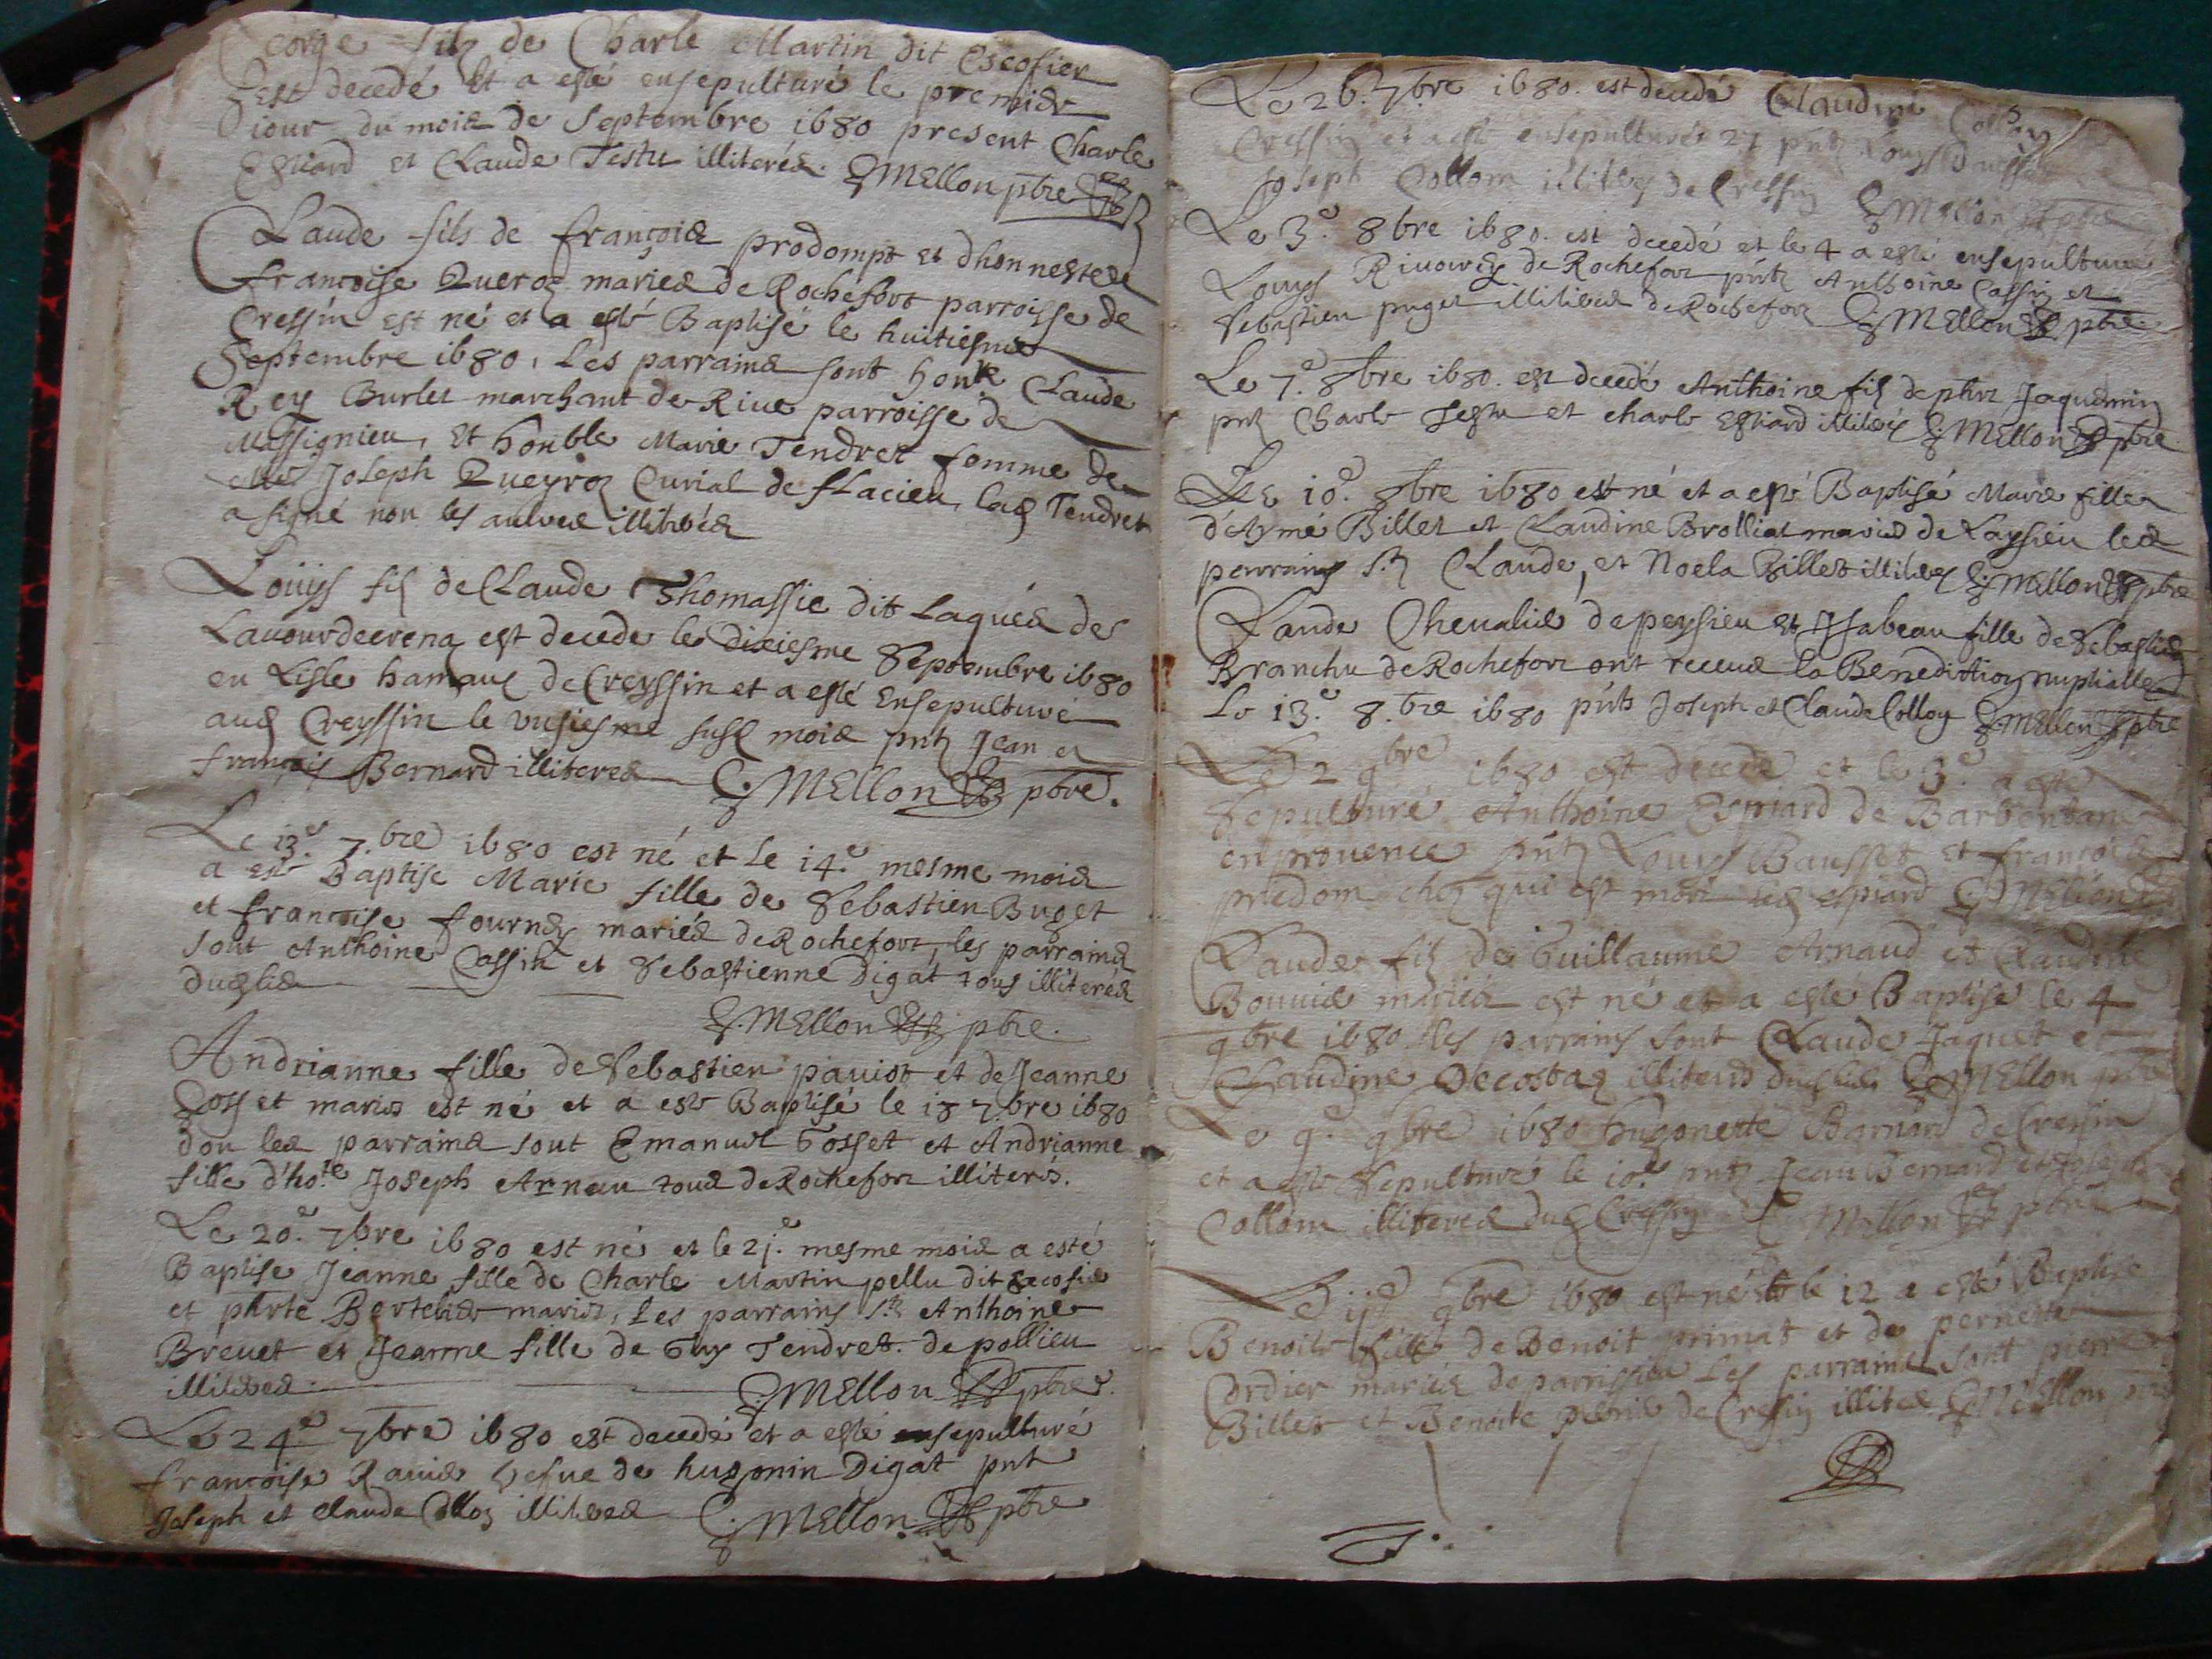 George filz de Charle Martin dit Escofier
est decedé et a esté ensepulturé le premier
iour du mois de Septembre 1680 present Charle
Espiard et Claude Testu illiterés. Mellon pbre
Claude fils de françois prodompt et dhonneste
françoise Queroz mariés de Rochefort parroisse de
Cressin est né et a esté Baptisé le huitiesme
Septembre 1680, les parrains sont honle Claude
Rey Burlet marchant de Riue parroisse de
Massignieu, et honble Marie Tendret femme de
Joseph Queyroz Curial de flacieu, lad Tendret
a signé non les autres illiterés
Loüys filz de Claude Thomassie dit Laqués de
est decede le dixiesme Septembre 1680
en Lisle hamaux de Creyssin et a esté Ensepulturé
aud Creyssin le vnsiesme susd mois pntz Jean et
françois Bernard illiteres Mellon pbre.
Le 13e 7.bre 1680 est né et le 14.e mesme mois
a esté Baptisé Marie fille de Sebastien Buget
et françoise fournez mariés de Rochefort, les parrains
sont Anthoine Cassin et Sebastienne Digat tous illiterés
dud lieu
Mellon pbre.
Andrianne fille de Sebastien pauiot et de Jeanne
Gosset mariés est né et a esté Baptisé le 18 7.bre 1680
dou les parrains sont Emanuel Gosset et Andrianne
fille d'ho.te Joseph Arnau tous de Rochefort illiterés.
Le 20.e 7bre 1680 est né et le 21.e mesme mois a esté
Baptise Jeanne fille de Charle Martin pellu dit Escofie
et Bertelier mariés, les parrains st Anthoine
Breuet et Jeanne fille de Guy Tendret. de pollieu
illiteres. Mellon pbre.
Le 24e 7bre 1680 est decedé et a esté ensepulturé
françoise Rauie Vefue de hugonin Digat pnt
Joseph et Claude Colloz illiteres Mellon pbre
Le 26. 7.bre 1680. est decedé Claudine
Cressin et a esté ensepulturé 27 pntz Louys Bausset
Joseph Collom illiteres de Cressin Mellon pbre
Le 3.e 8bre 1680. est decedé et le 4 a esté ensepulturé
Louys de Rochefort pntz Anthoine Cassin et
Sebastien puget illiteres de Rochefort Mellon pbre
Le 7.e 8bre 1680. est decedé Anthoine filz de Jaquemin
pntz Charle Testu et charle Espiard illiterés Mellon pbre
Le 10.e 8bre 1680 est né et a esté Baptisé Marie fille
d'Aymé Billet et Claudine Brolliat mariés de Laysieu les
parrains st Claude, et Noela Billet illiteres Mellon pbre
Claude Cheualier de peysieu et Jsabeau fille de Sebastien
Branchu de Rochefort ont receus la Benediction nuptialle
Le 13.e 8.bre 1680 pnts Joseph et Claude Colloz Mellon pbre
Le 2 9bre 1680 est decedé et le 3.e a esté
Sepulturé Anthoine Espiard de Barbentane
en prouence pntz Louys Bausset et françois
predom chez qui est mort led espiard Mellon
Claude filz de Guillaume Arnaud et Claudine
Bouuie mariés est né et a esté Baptisé le 4
9bre 1680 les parrains sont Claude Jaquet et
Claudine Decostaz illiteres dud lieu Mellon pbre
Le 9.e 9bre 1680 hugonette Barnard de Cressin
et a esté Sepulturé le 10.e pntz Jean Bernard et Joseph
Collom illiteres dud Cressin Mellon pbre
Le 11e 9bre 1680 est né et le 12 a esté Baptisé
Benoite fille de Benoit primat et de pernette
Cordier mariés de parrissieu les parrains sont pierre
Billet et Benoite de Cressin illiteres Mellon pbre